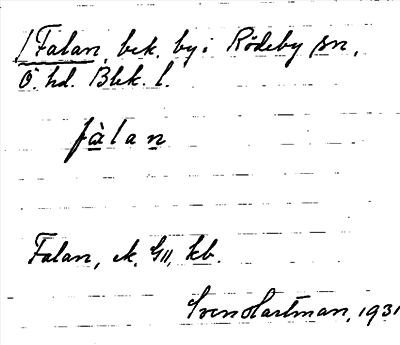 /Falan, bek. by i Rödeby sn,
Ö. hd. Blek. l.
fàlan
Falan, ek. G11, kb.
Sven Hartman, 1931